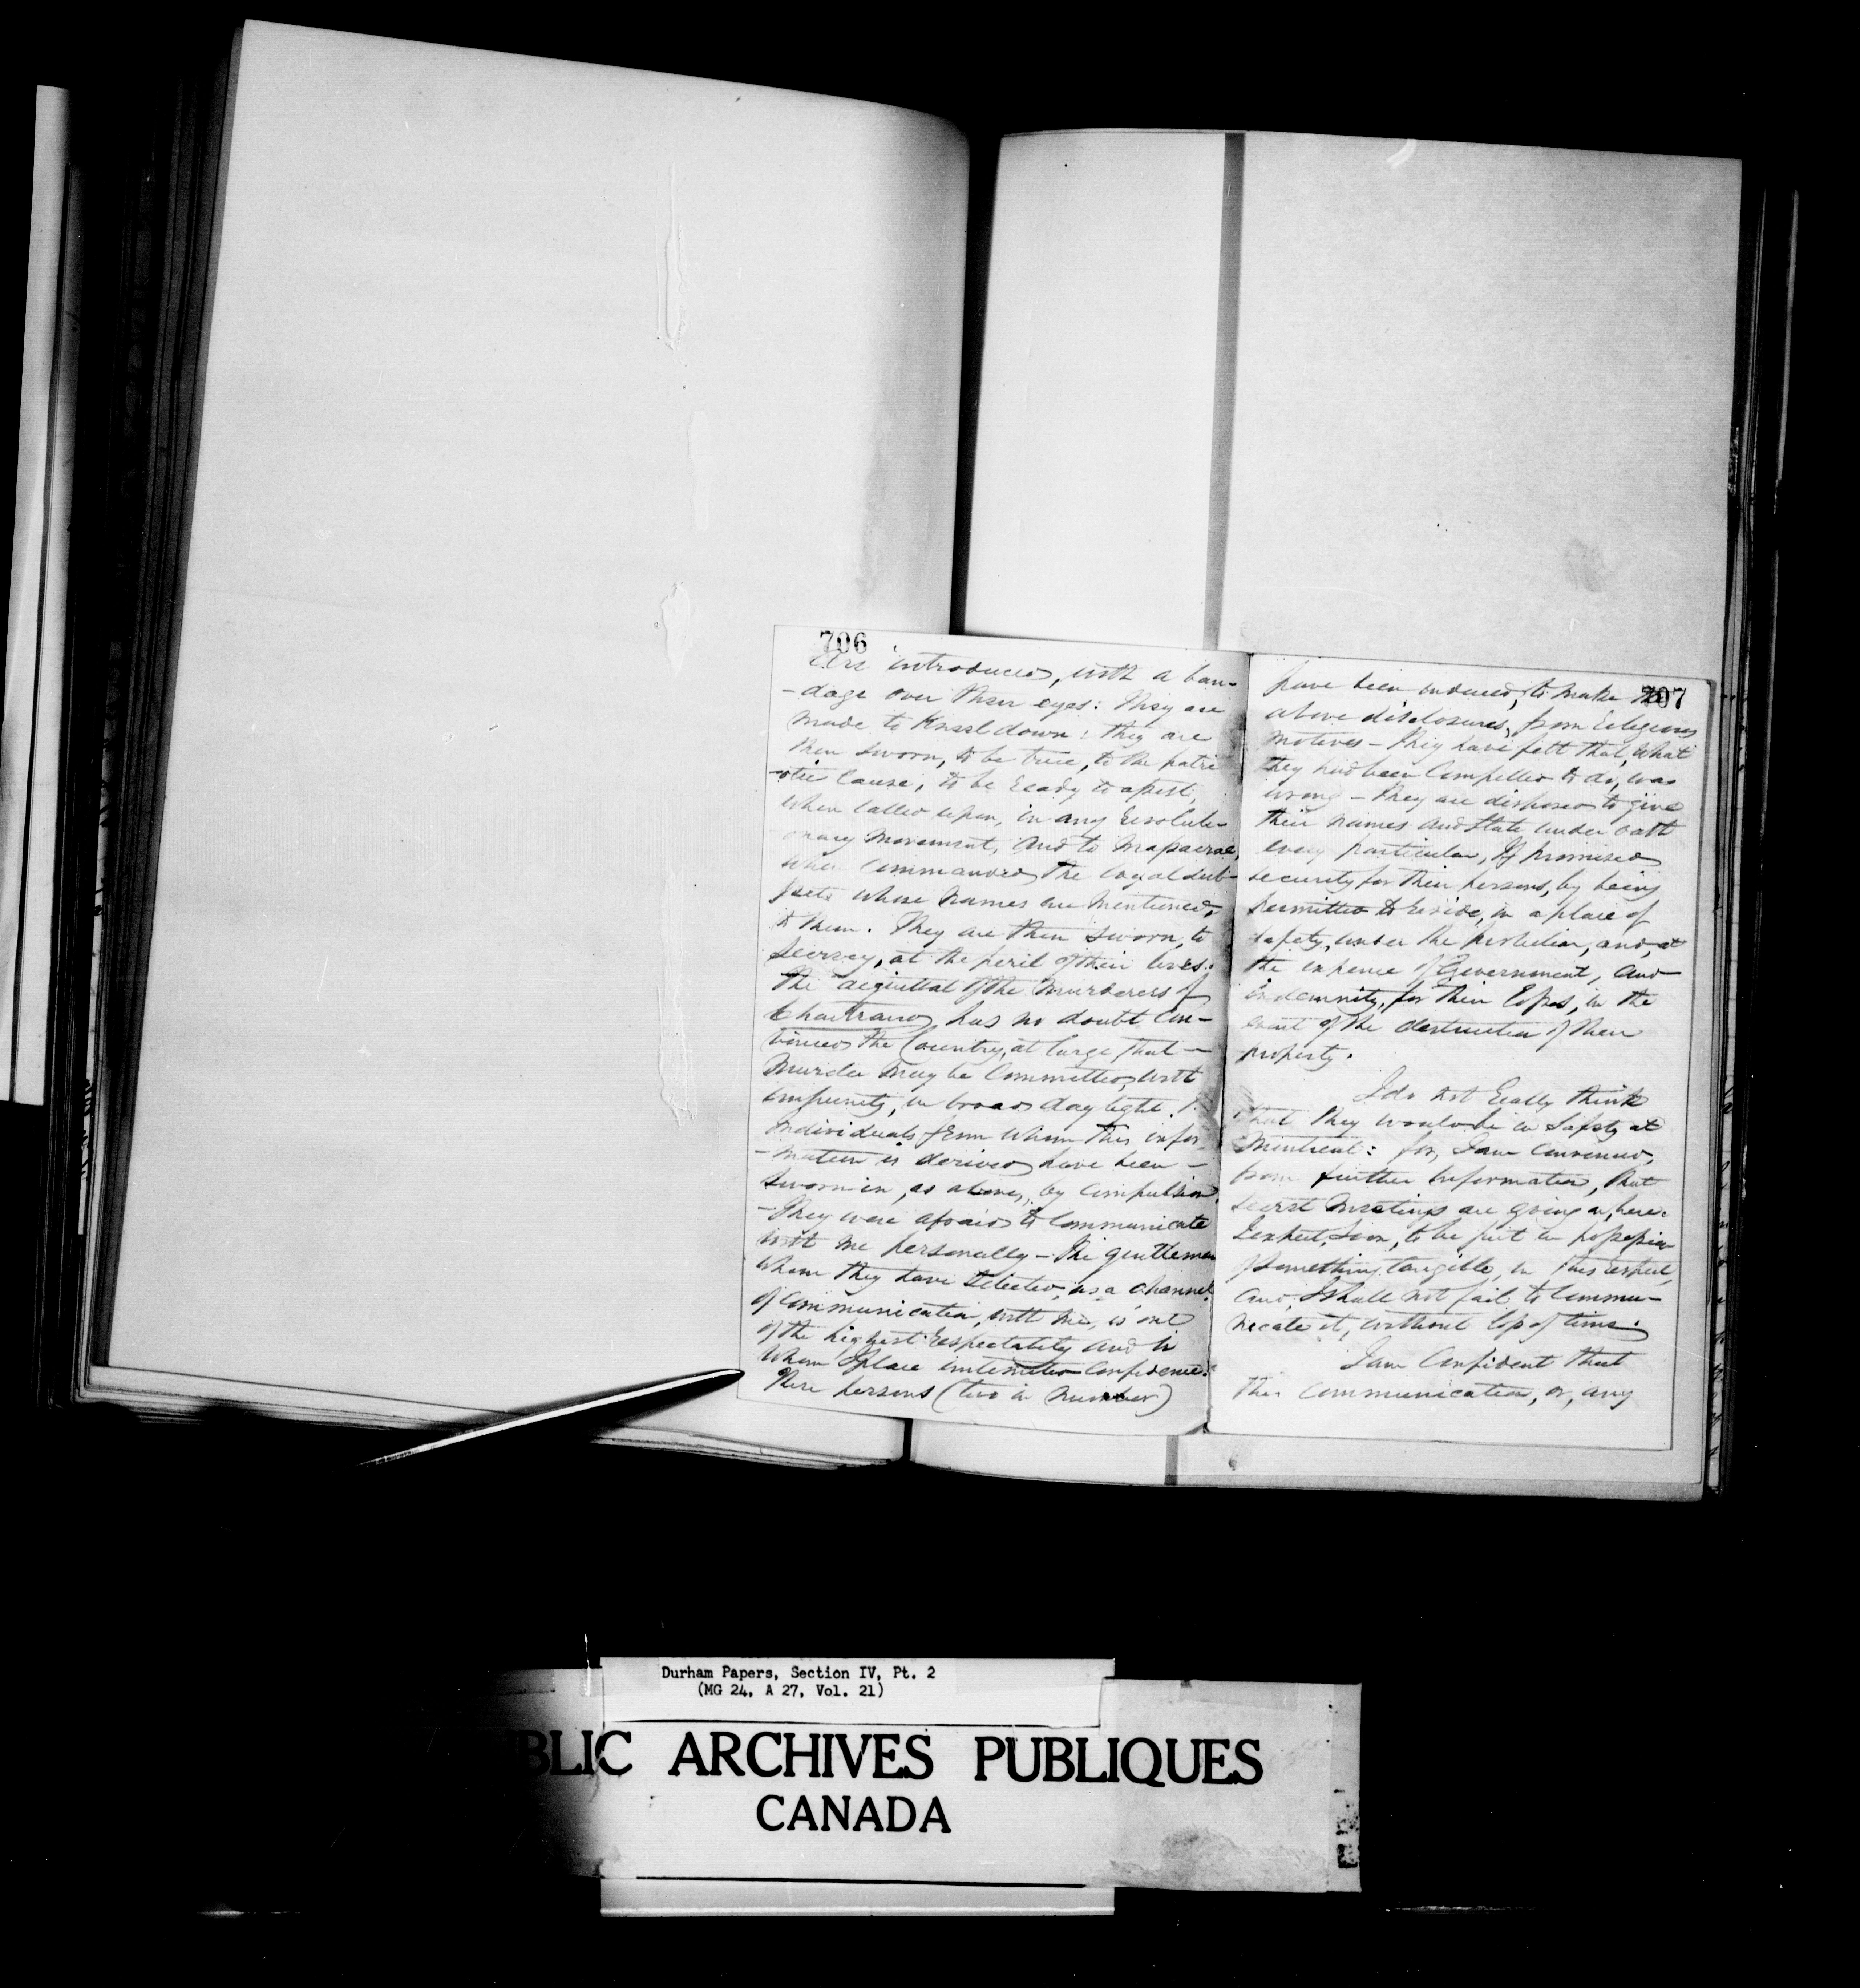 706
are introduced, with a ban-
-dage over their eyes: they are
made to kneel down: they are
then sworn, to be true, to the patri
-otic cause; to be ready to assist,
when called upon, in any revoluti-
onary movement, and to massacre,
when commanded the loyal sub-
jects whose names are mentioned,
to them. They are then sworn, to
secrecy, at the peril of their lives.
The acquittal of the murderers of
Chartrand has no doubt con-
vinced the Country, at large, that -
murder may be committed, with
impunity, in broad day light.
individuals from whom this infor-
-mation is derived have been -
sworn in, as above, by compulsion.
- They were afraid to communicate
with me personally - the gentleman
whom they have selected, as a channel
of communication, with me, is one
of the highest respectability and in
whom I place unlimited confidence.
These persons (two in number)
707
have been induced, to make the
above disclosures, from religious
motives - they have felt that, what
they had been compelled to do, was
wrong - they are disposed to give
their names and state under oath
every particular, if promised
security for their persons, by being
permitted to reside, in a place of
safety, under the protection, and, at
the expense of Government, and
indemnity, for their losses, in the
event of the destruction of their
property.
I do not really think
that they would be in safety at
Montreal: for, I am convinced,
from further information, that
secret meetings are going on, here.
I expect, soon, to be put in possession
of something tangible, in this respect,
and, I shall not fail to commu-
nicate it, without loss of time.
I am confident that
this communication, or, any
Durham Papers, Section IV, Pt. 2
(MG 24, A 27, Vol. 21)
BLIC ARCHIVES PUBLIQUES
CANADA